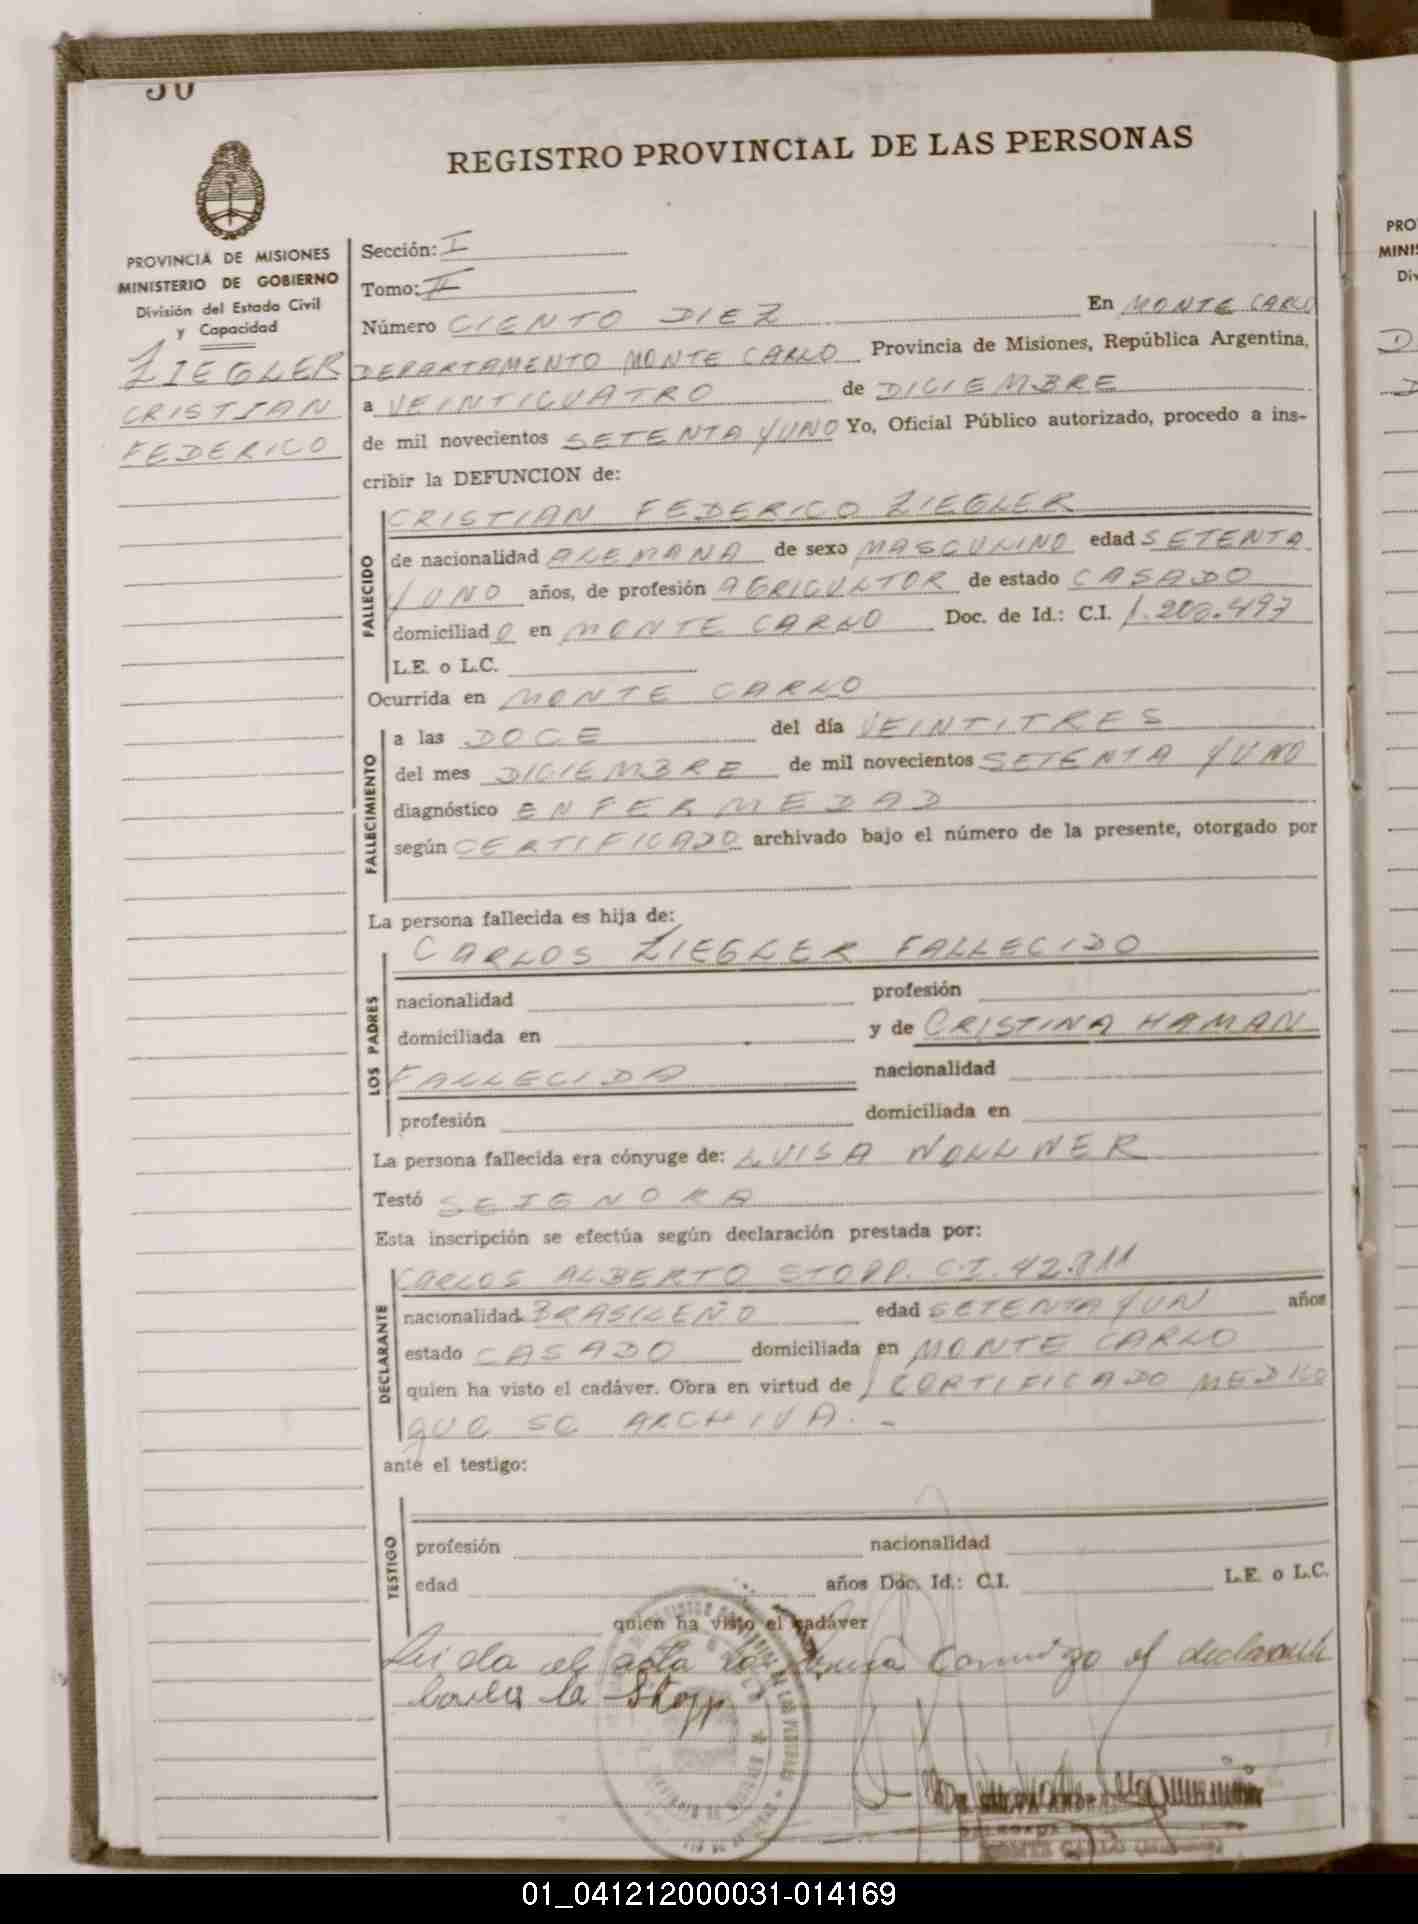 50
REGISTRO PROVINCIAL DE LAS PERSONAS
PROVINCIA DE MISIONES
MINISTERIO DE GOBIERNO
División del Estado Civil
y Capacidad
ZIEGLER
CRISTIAN
FEDERICO
Sección: I
Tomo: II
Número CIENTO DIEZ En MONTE CARLO
DEPARTAMENTO MONTE CARLO Provincia de Misiones, República Argentina,
a VEINTICUATRO de DICIEMBRE
de mil novecientos SETENTA Y UNO Yo, Oficial Público autorizado, procedo a ins-
cribir la DEFUNCION de:
FALLECIDO
CRISTIAN FEDERICO ZIEGLER
de nacionalidad ALEMANA de sexo MASCULINO edad SETENTA
Y UNO años, de profesión AGRICULTOR de estado CASADO
domiciliado en MONTE CARLO Doc. de Id.: C.I. 1.206.497
L.E. o L.C.
Ocurrida en MONTE CARLO
FALLECIMIENTO
a las DOCE del día VEINTITRES
del mes DICIEMBRE de mil novecientos SETENTA Y UNO
diagnóstico ENFERMEDAD
según CERTIFICADO archivado bajo el número de la presente, otorgado por
La persona fallecida es hija de:
LOS PADRES
CARLOS ZIEGLER FALLECIDO
nacionalidad profesión
domiciliada en y de CRISTINA HAMAN
FALLECIDA nacionalidad
profesión domiciliada en
La persona fallecida era cónyuge de: LUISA NOLLNER
Testó SE IGNORA
Esta inscripción se efectúa según declaración prestada por:
DECLARANTE
CARLOS ALBERTO STOPP. C.I. 42.811
nacionalidad BRASILEÑO edad SETENTA Y UN años
estado CASADO domiciliada en MONTE CARLO
quien ha visto el cadáver. Obra en virtud de CERTIFICADO MEDICO
QUE SE ARCHIVA. -
ante el testigo:
TESTIGO
profesión nacionalidad
edad años Doc. Id.: C.I. L.E. o L.C.
quien ha visto el cadáver
Leida el acta la firma conmigo el declarante
PRO
MINIS
Div
01_041212000031-014169